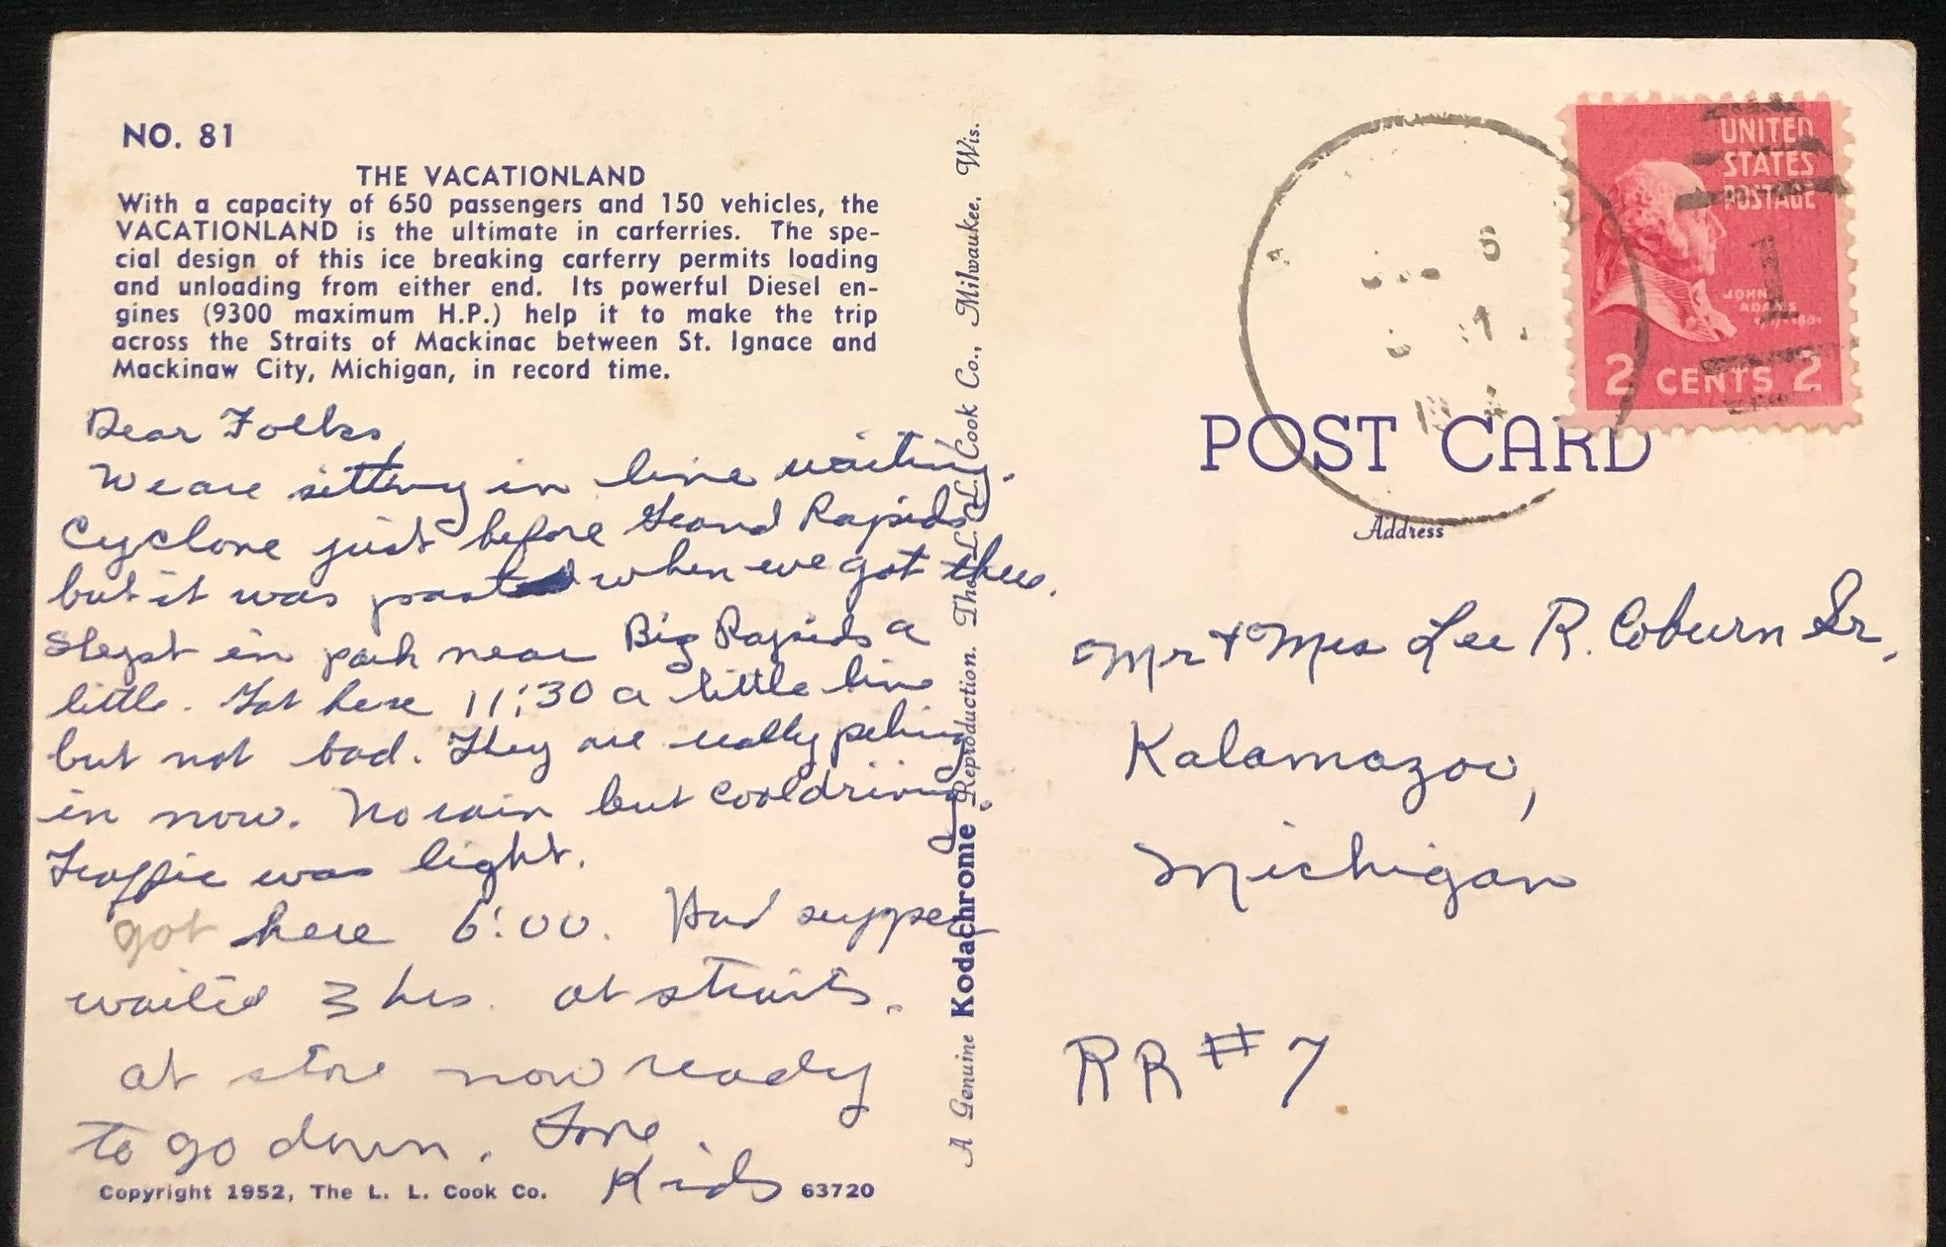 NO. 81
THE VACATIONLAND
With a capacity of 650 passengers and 150 vehicles, the
VACATIONLAND is the ultimate in carferries. The spe-
cial design of this ice breaking carferry permits loading
and unloading from either end. Its powerful Diesel en-
gines (9300 maximum H.P.) help it to make the trip
across the Straits of Mackinac between St. Ignace and
Mackinaw City, Michigan, in record time.
Dear Folks,
We are sitting in line waiting.
Cyclone just before Grand Rapids
but it was past when we got there.
Slept in park near Big Rapids a
little. Got here 11:30 a little line
but not bad. They are really piling
in now. No rain but cool driving
Traffic was light.
got here 6:00. Had supper
waited 3 hrs. at straits.
at store now ready
to go down. Love
Kids
Copyright 1952, The L. L. Cook Co. 63720
A Genuine Kodachrome Reproduction. The L. L. Cook Co., Milwaukee, Wis.
UNITED
STATES
POSTAGE
1
JOHN
ADAMS
1797-1801
2 CENTS 2
POST CARD
Address
Mr & Mrs Lee R. Coburn Sr,
Kalamazoo,
Michigan
RR #7